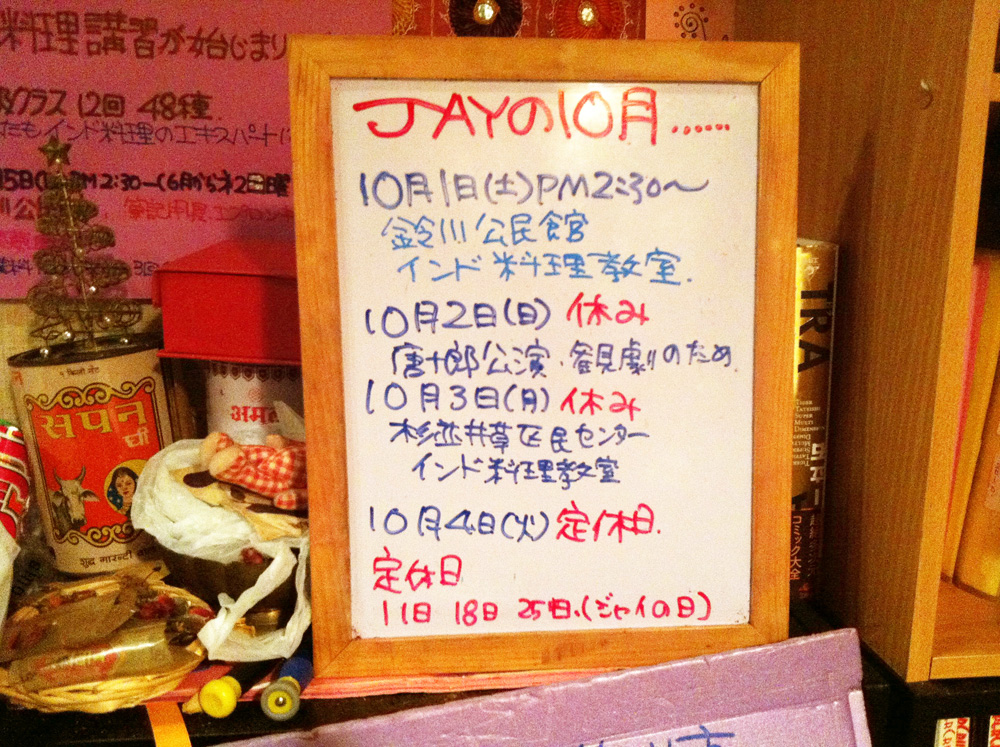 料理講習が始じまり
クラス 12回 48種
たもインド料理のエキスパートに
PM2:30〜(6月から第2日曜
JAYの10月……
10月1日(土)PM2:30〜
鈴川公民館
インド料理教室.
10月2日(日) 休み
唐十郎公演.観劇のため
10月3日(月) 休み
杉並井草区民センター
インド料理教室
10月4日(火)定休日.
定休日
11日 18日 25日.(ジャイの日)
सपन
घी
शुद्ध गारन्टी
अमर
TIRA
コミック大全